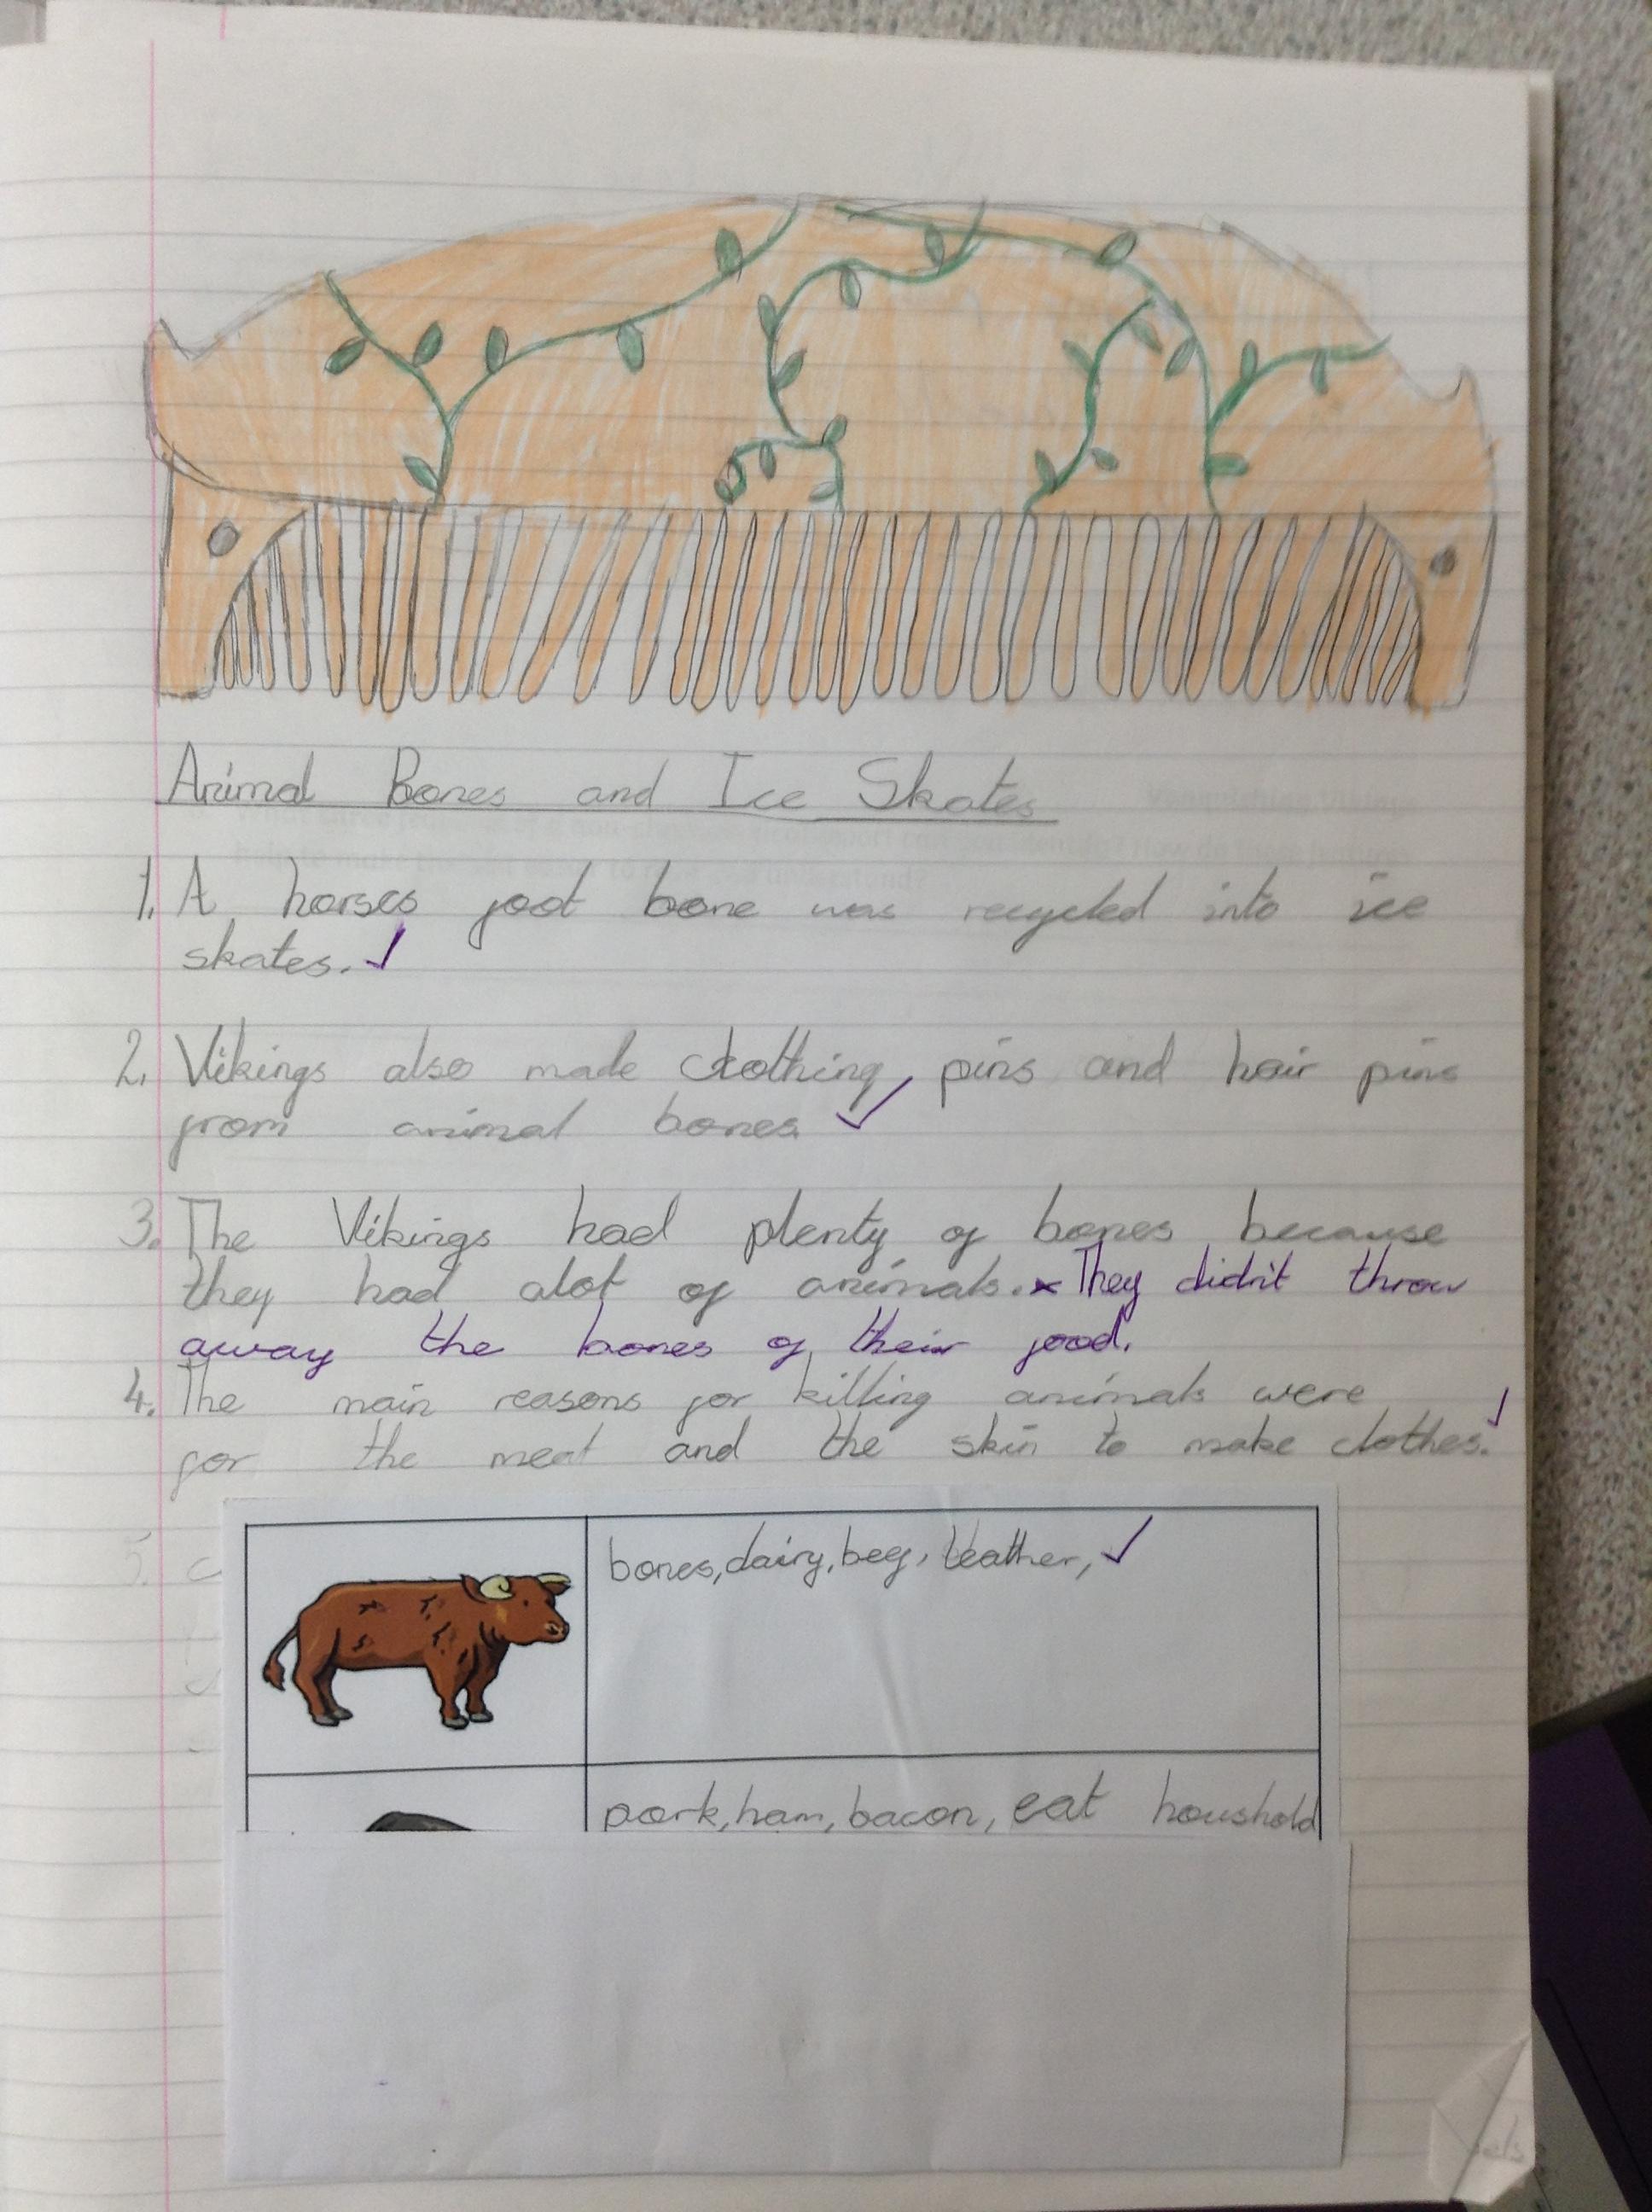 Animal Bones and Ice Skates
1. A horses foot bone was recycled into ice
skates.
2. Vikings also made clothing pins and hair pins
from animal bones.
3. The Vikings had plenty of bones because
they had alot of animals. They didn't throw
away the bones of their food.
4. The main reasons for killing animals were
for the meat and the skin to make clothes.
5.
bones, dairy, beef, leather,
pork, ham, bacon, eat houshold